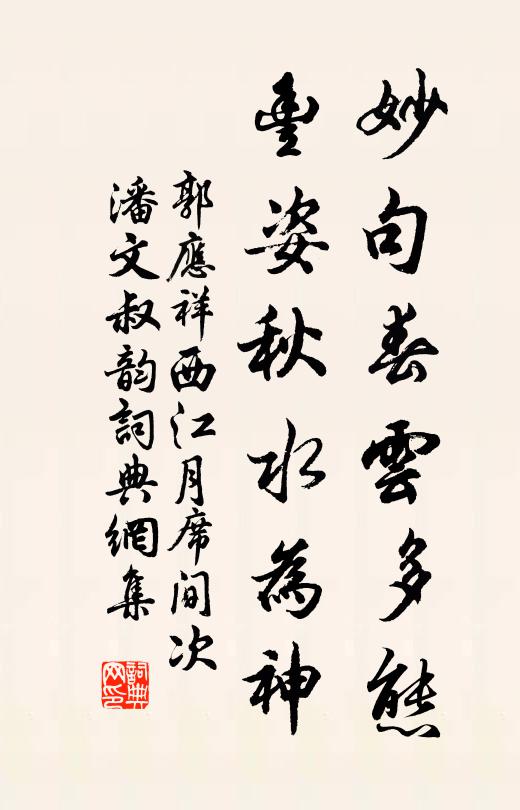 妙句春雲多態
豐姿秋水為神
郭應祥西江月席間次
潘文叔韵詞典網集
詞典
网印